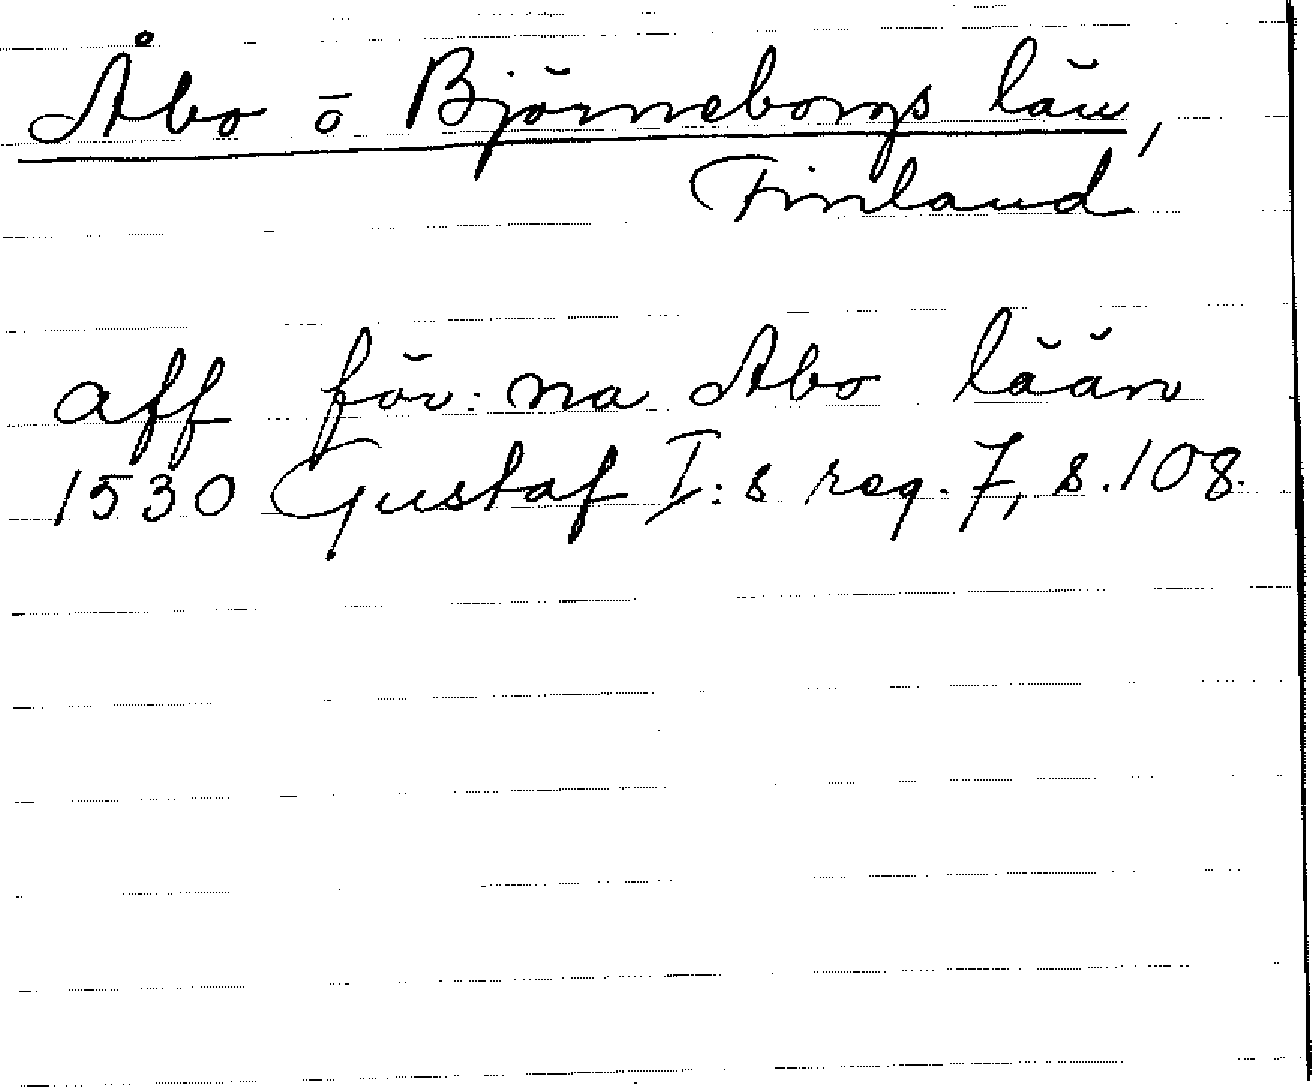 Åbo ō Björneborgs län,
Finland
aff för:na Abo lään
1530 Gustaf I:s reg. 7, s. 108.